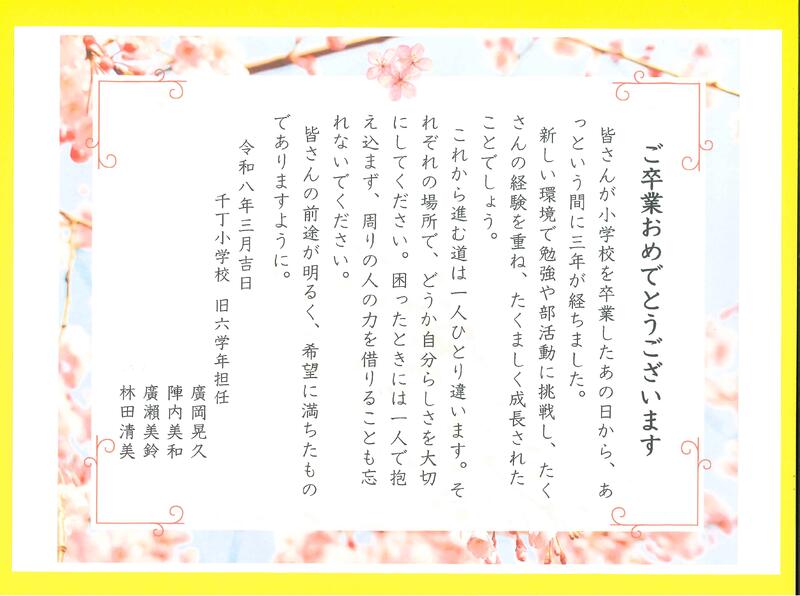 ご卒業おめでとうございます
皆さんが小学校を卒業したあの日から、あ
っという間に三年が経ちました。
新しい環境で勉強や部活動に挑戦し、たく
さんの経験を重ね、たくましく成長された
ことでしょう。
これから進む道は一人ひとり違います。そ
れぞれの場所で、どうか自分らしさを大切
にしてください。困ったときには一人で抱
え込まず、周りの人の力を借りることも忘
れないでください。
皆さんの前途が明るく、希望に満ちたもの
でありますように。
令和八年三月吉日
千丁小学校 旧六学年担任
廣岡晃久
陣内美和
廣瀬美鈴
林田清美